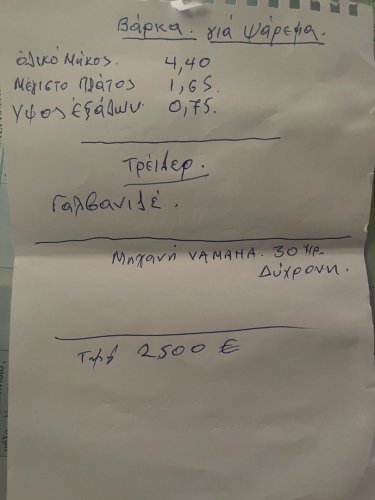 Βάρκα. γιά Ψάρεμα.
ολικό Μήκος. 4,40
Μέγιστο Πλάτος 1,65.
Υψος Εξάλων. 0,75.
Τρέιλερ.
Γαλβανιζέ.
Μηχανή YAMAHA. 30 HP.
Δύχρονη.
Τιμή 2500 €